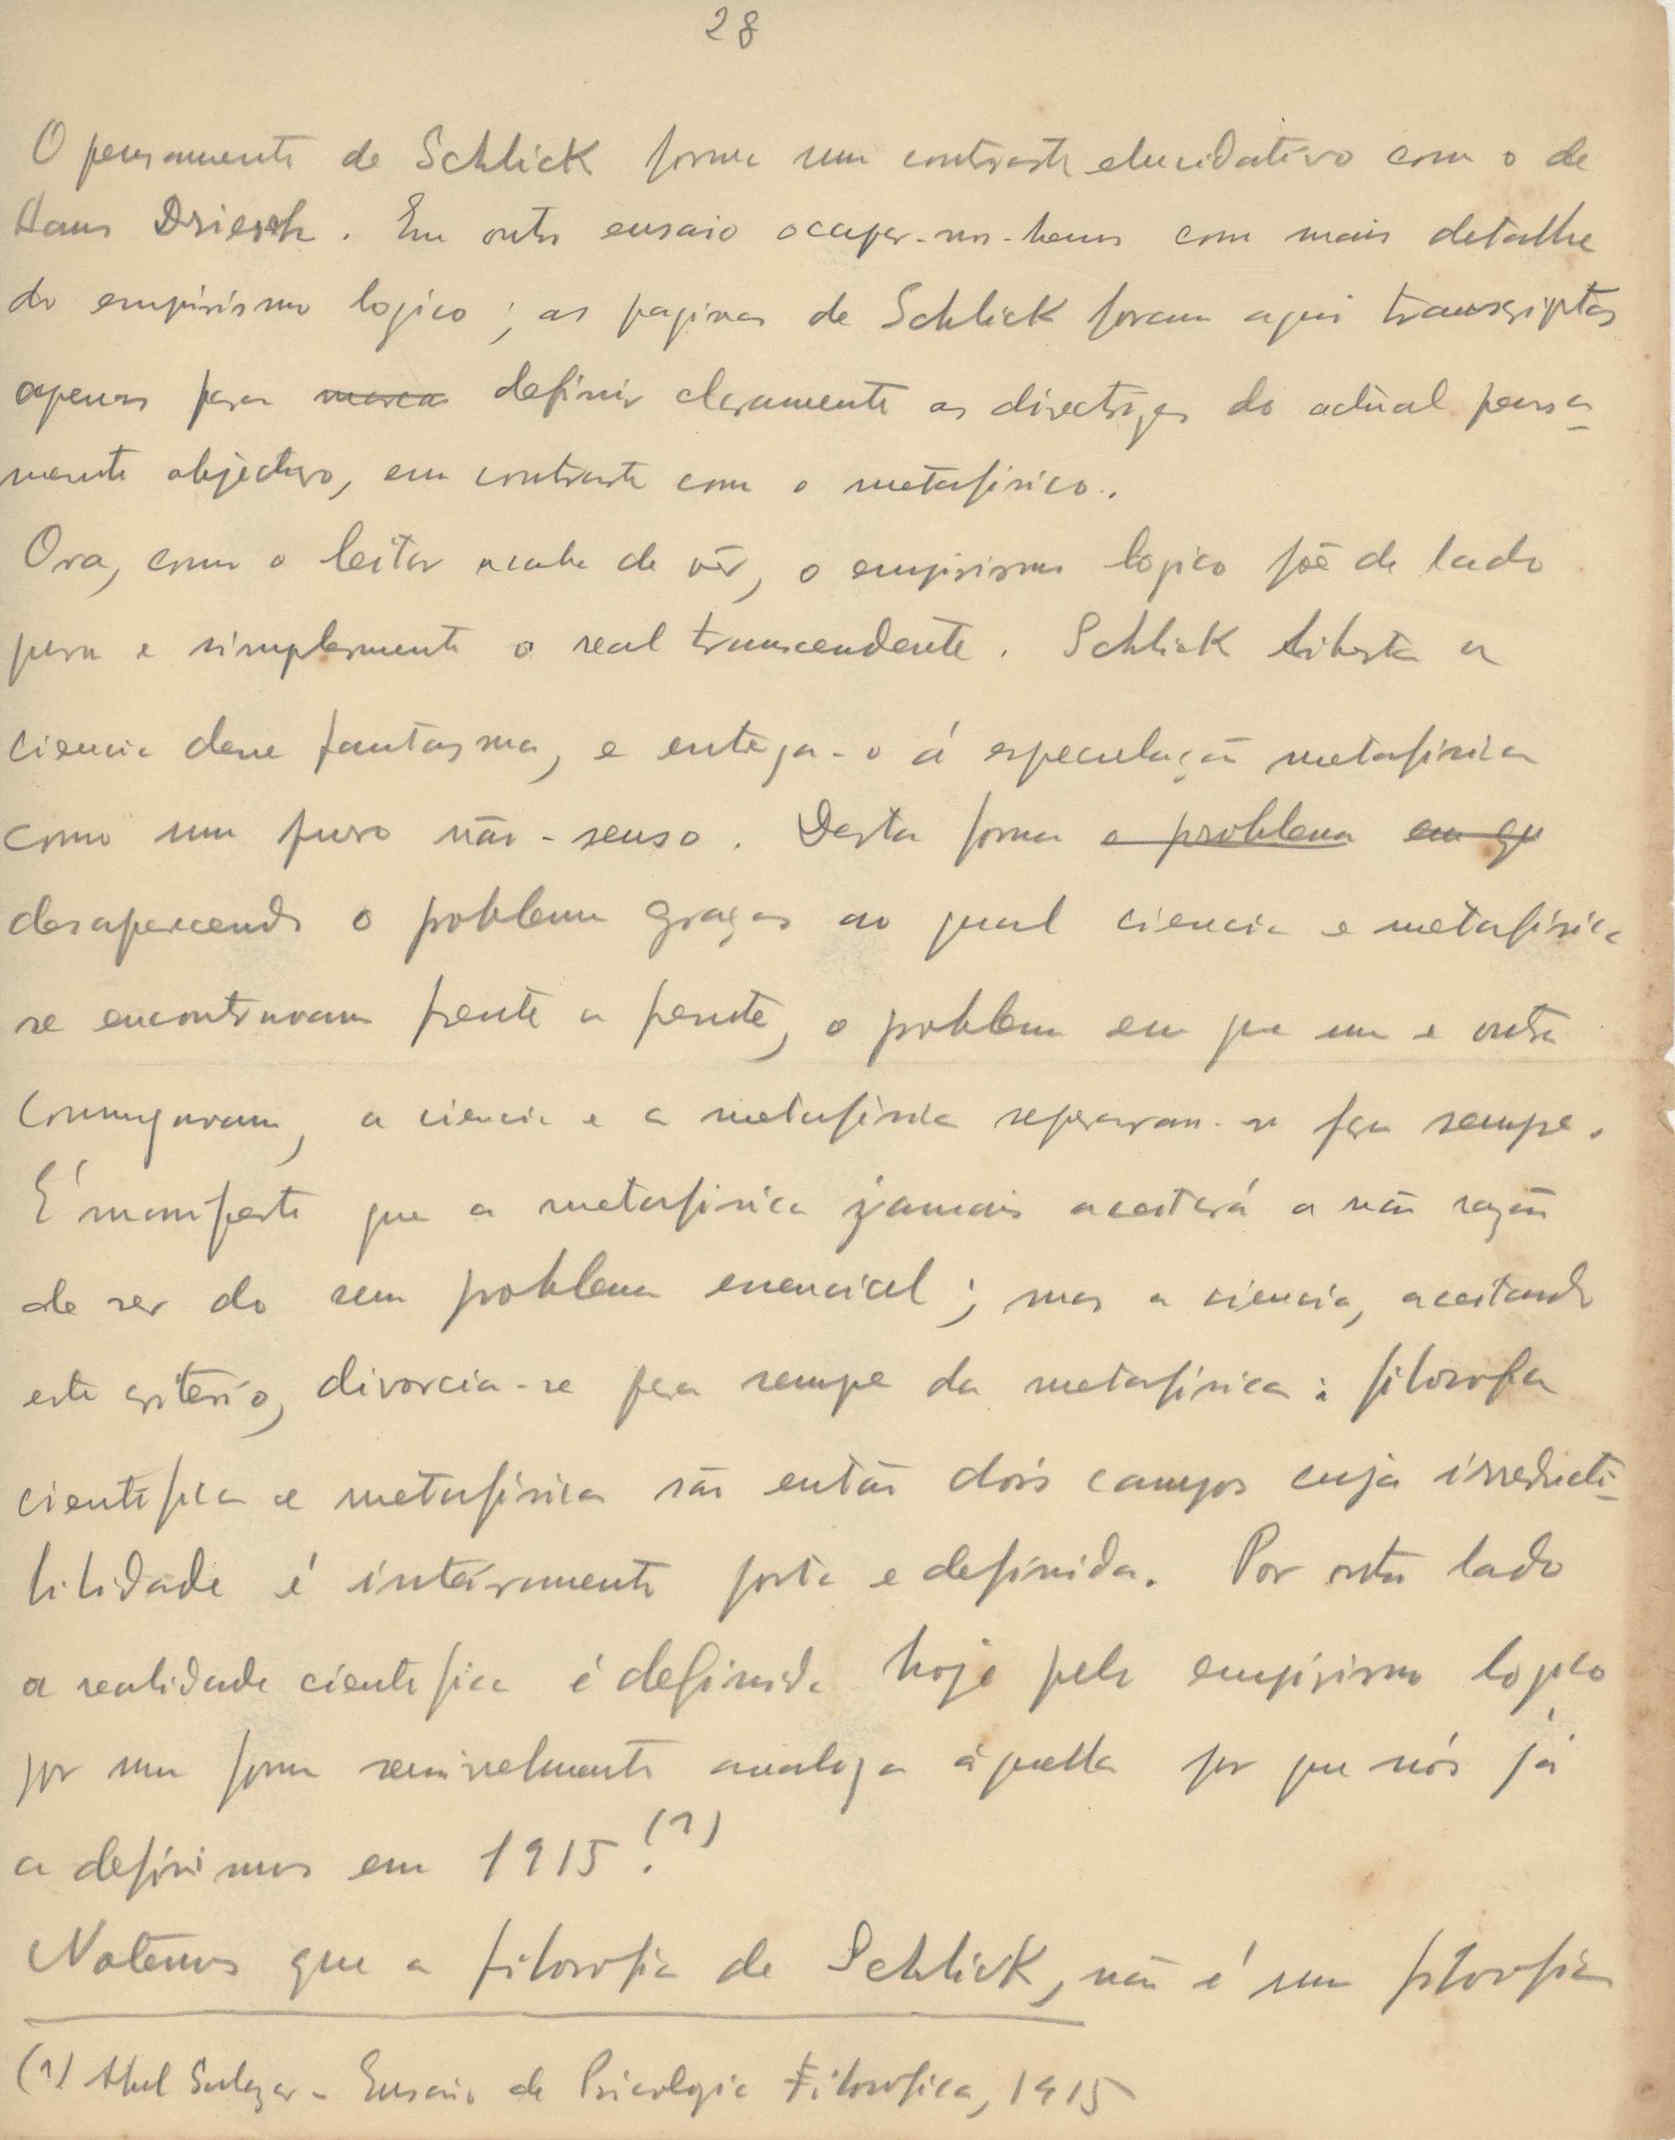 28
O pensamento de Schlick forma um contraste elucidativo com o de
Hans Driesch. Em outro ensaio ocupar-nos-hemos com mais detalhe
do empirismo logico; as paginas de Schlick foram aqui transcriptas
apenas para marca definir claramente as directrizes do actual pensa-
mento objectivo, em contraste com o metafisico.
Ora, como o leitor acaba de vêr, o empirismo logico põe de lado
pura e simplesmente o real transcendente. Schlick liberta a
ciencia desse fantasma, e entrega-o á especulação metafisica
como um puro não-senso. Desta forma o problema em qu
desaparecendo o problema graças ao qual ciencia e metafisica
se encontravam frente a frente, o problema em que uma e outra
comungavam, a ciencia e a metafisica separaram-se para sempre.
É manifesto que a metafisica jamais aceitará a não razão
de ser do seu problema essencial; mas a ciencia, aceitando
este critério, divorcia-se para sempre da metafisica: filosofia
cientifica e metafisica são então dois campos cuja irreducti-
bilidade é inteiramente posta e definida. Por outro lado
a realidade cientifica é definida hoje pelo empirismo logico
por uma forma sensivelmente analoga áquella por que nós já
a definimos em 1915.(1)
Notemos que a filosofia de Schlick, não é uma filosofia
(1) Abel Salazar - Ensaio de Psicologia Filosofica, 1915